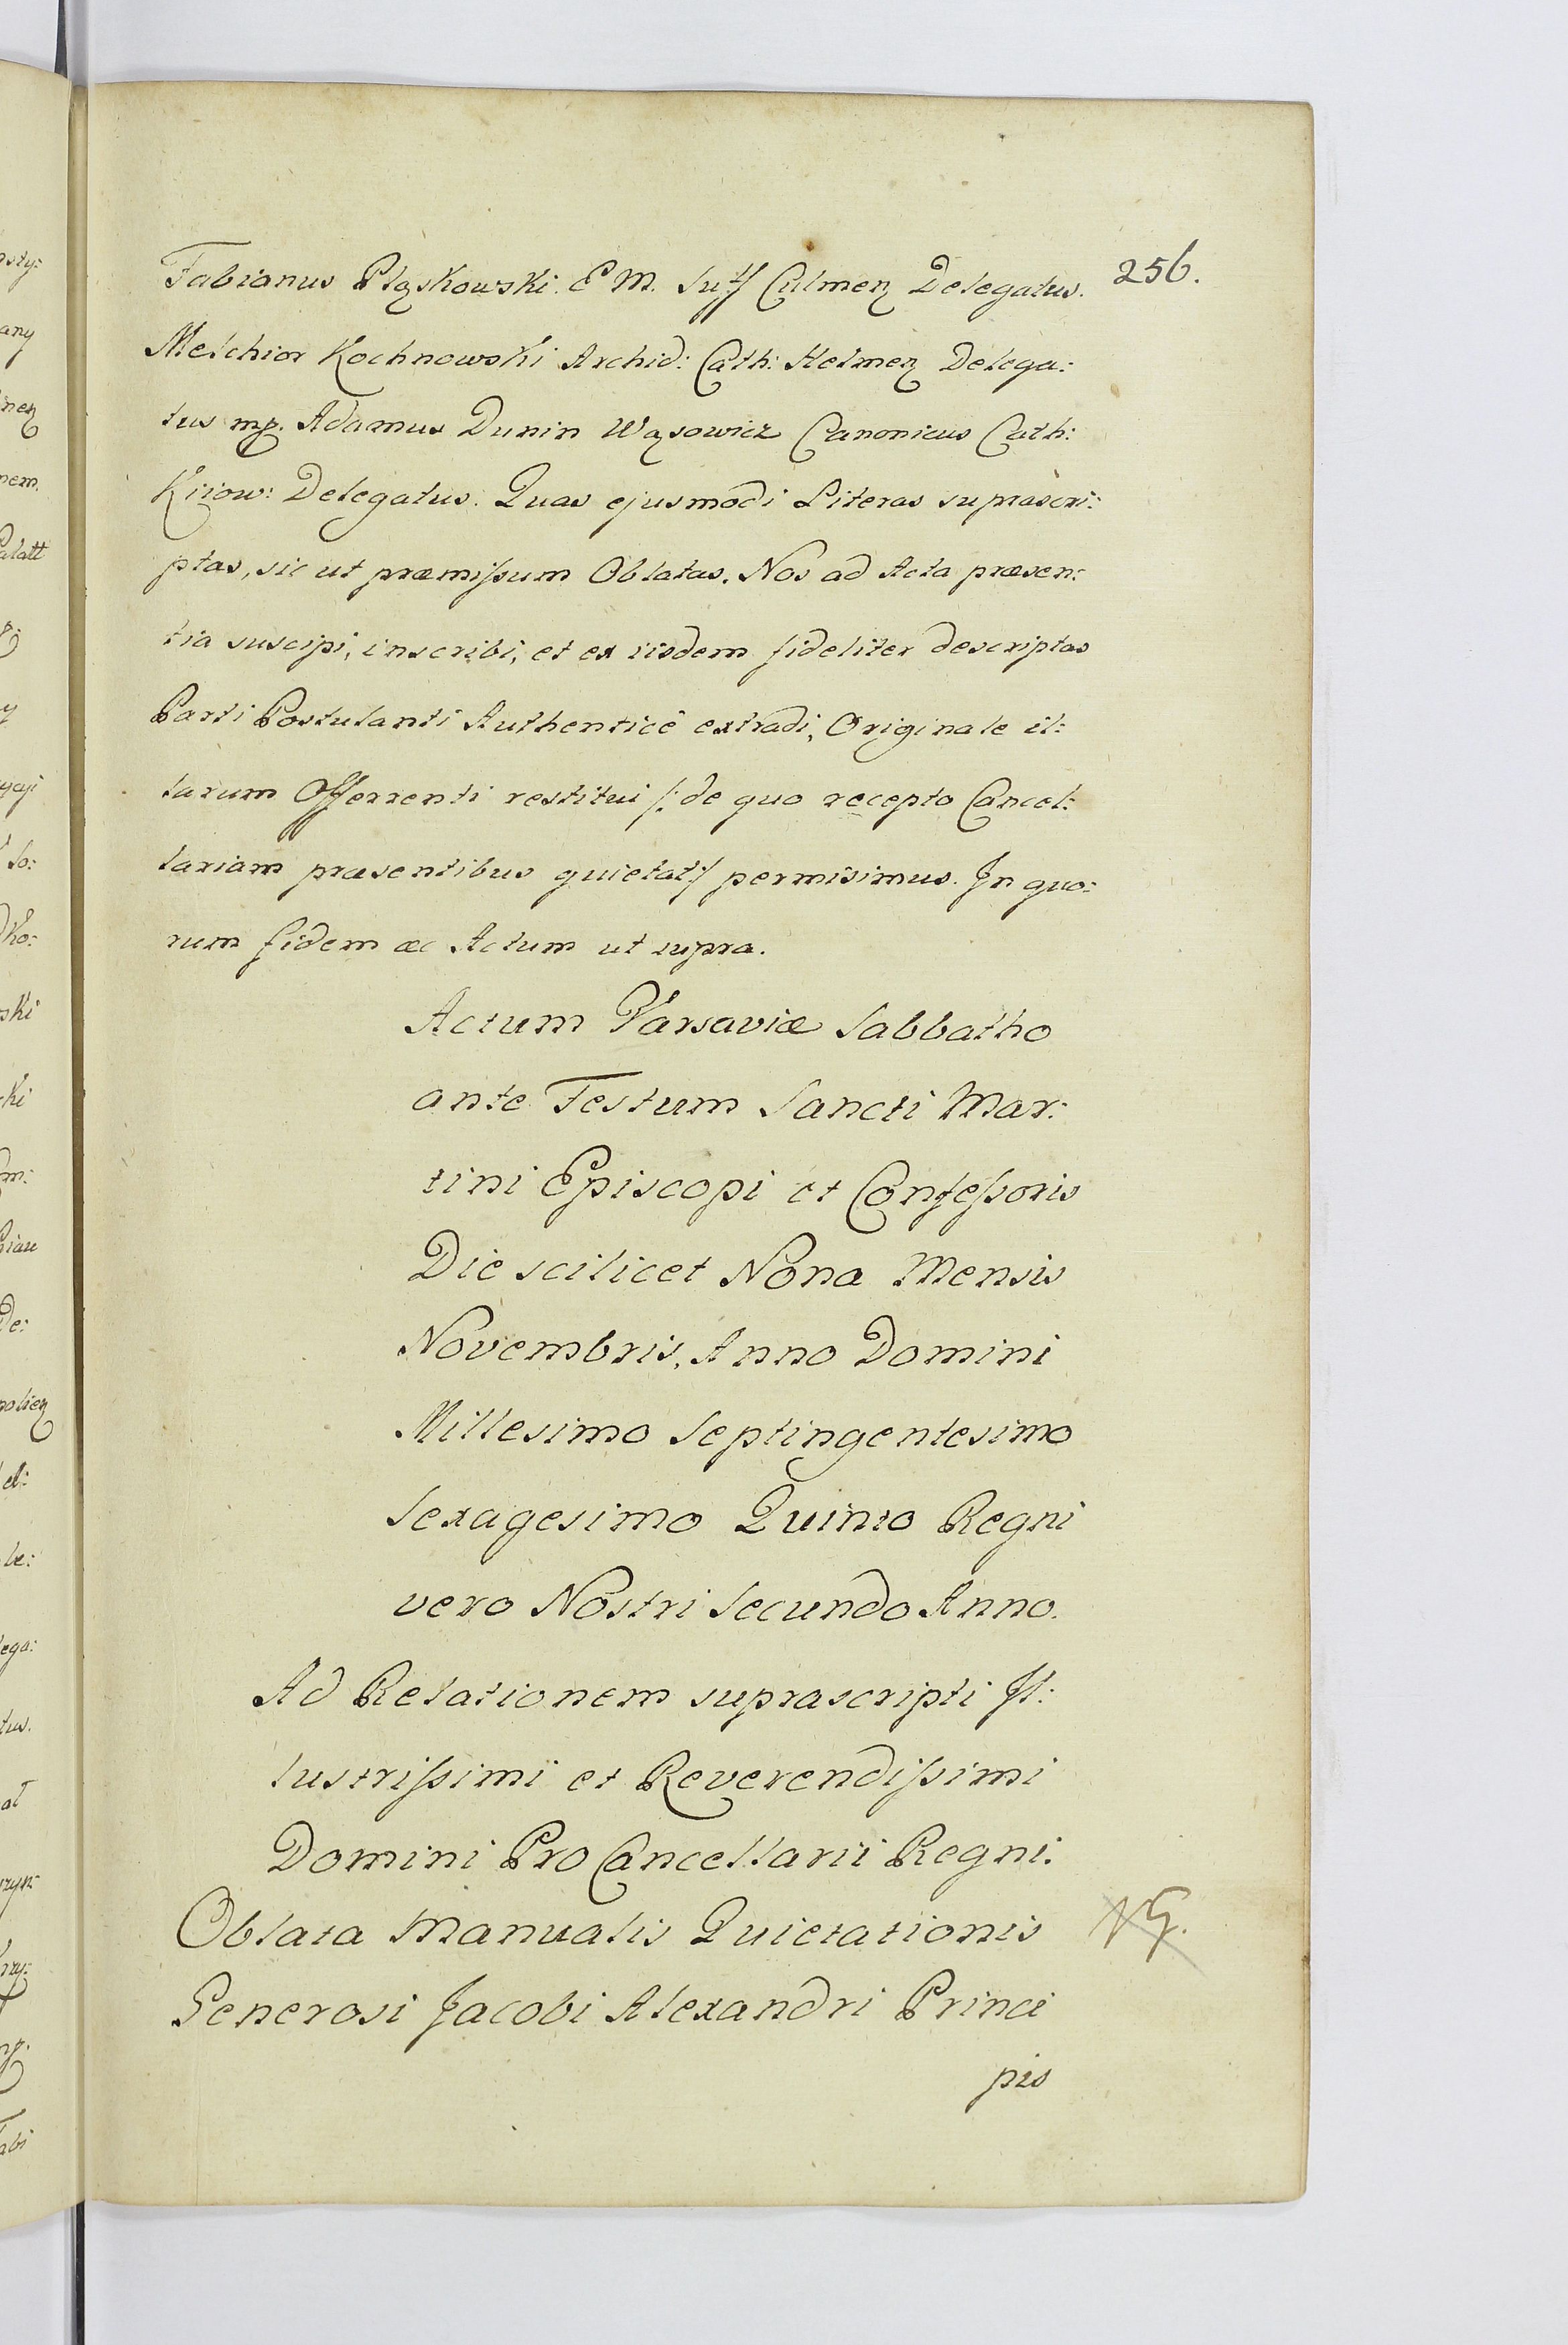 256.
Fabianus Pląskowski. E M. Suff Culmen Delegatus.
Melchior Kochnowski Archid: Cath: Helmen Delega:
tus mp. Adamus Dunin Wąsowicz Canonicus Cath:
Kiiow: Delegatus. Quas ejusmodi Literas suprascri:
ptas, sic ut præmissum Oblatas. Nos ad Acta præsen:
tia suscipi, inscribi, et ex iisdem fideliter descriptas
Parti Postulanti Authenticê extradi, Originale il:
larum Offerrenti restitui /: de quo recepto Cancel:
lariam præsentibus quietat :/ permisimus. In quo:
rum fidem æc Actum ut supra.
Actum Varsaviæ Sabbatho
ante Festum Sancti Mar:
tini Episcopi et Confessoris
Die scilicet Nona Mensis
Novembris, Anno Domini
Millesimo Septingentesimo
Sexagesimo Quinto Regni
vero Nostri Secundo Anno.
Ad Relationem suprascripti Il:
lustrissimi et Reverendissimi
Domini Pro Cancellarii Regni.
Oblata Manualis Quietationis
Generosi Jacobi Alexandri Princi
pis